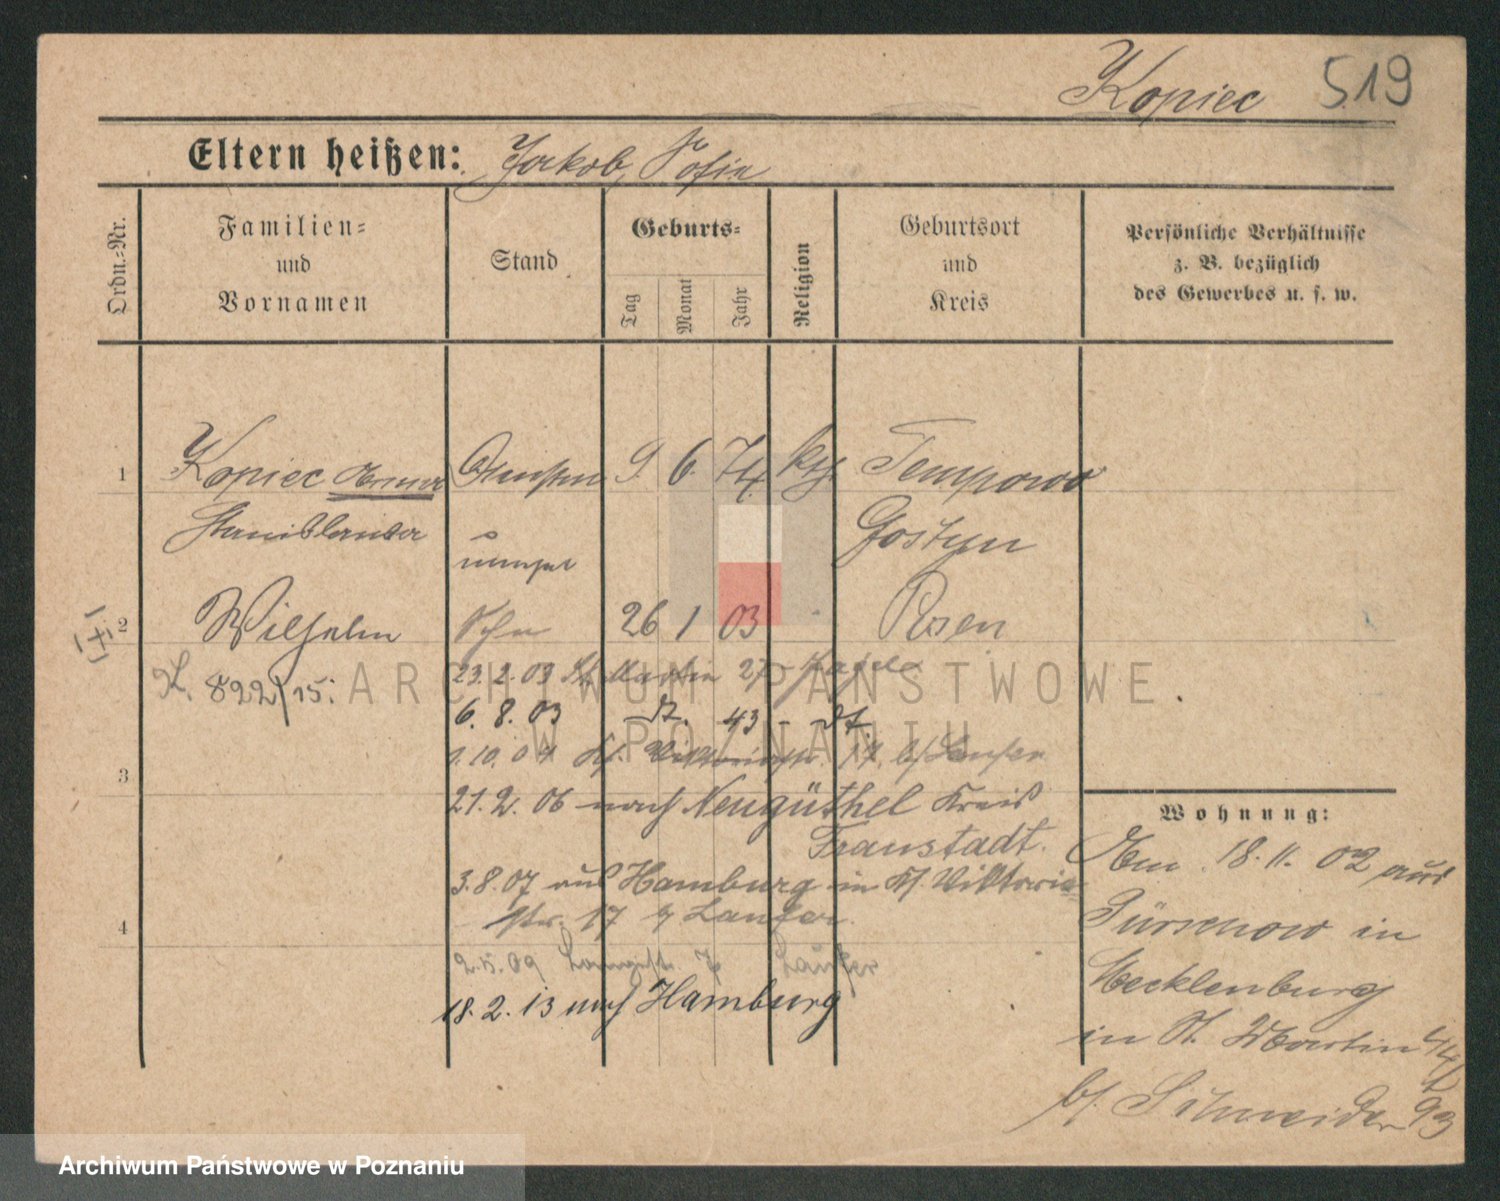 Kopiec 519
Eltern heißen: Jakob, Sofie
Ordn.-Nr.
Familien-
und
Vornamen
Stand
Geburts-
Tag
Monat
Jahr
Religion
Geburtsort
und
Kreis
Persönliche Verhältnisse
z. B. bezüglich
des Gewerbes u. s. w.
1 Kopiec 9. 6. 74 kth.
Stanislawa Gostyn
2 Wilhelm Sohn 26 1 03 Posen
822/15.
23.2.03 St. Martin 27
6. 8. 03 dt. 43 dt.
1.10.04
3
21.2.06 nach Neugüthel Kreis
Fraustadt.
3.8.07 aus Hamburg in Viktoria
str. 17 Laufer
4
Laufer
18.2.13 nach Hamburg
Wohnung:
Am 18.11.02 aus
in
Mecklenburg
in St. Martin
b/. Schneider
ARCHIWUM PAŃSTWOWE
W POZNANIU
Archiwum Państwowe w Poznaniu